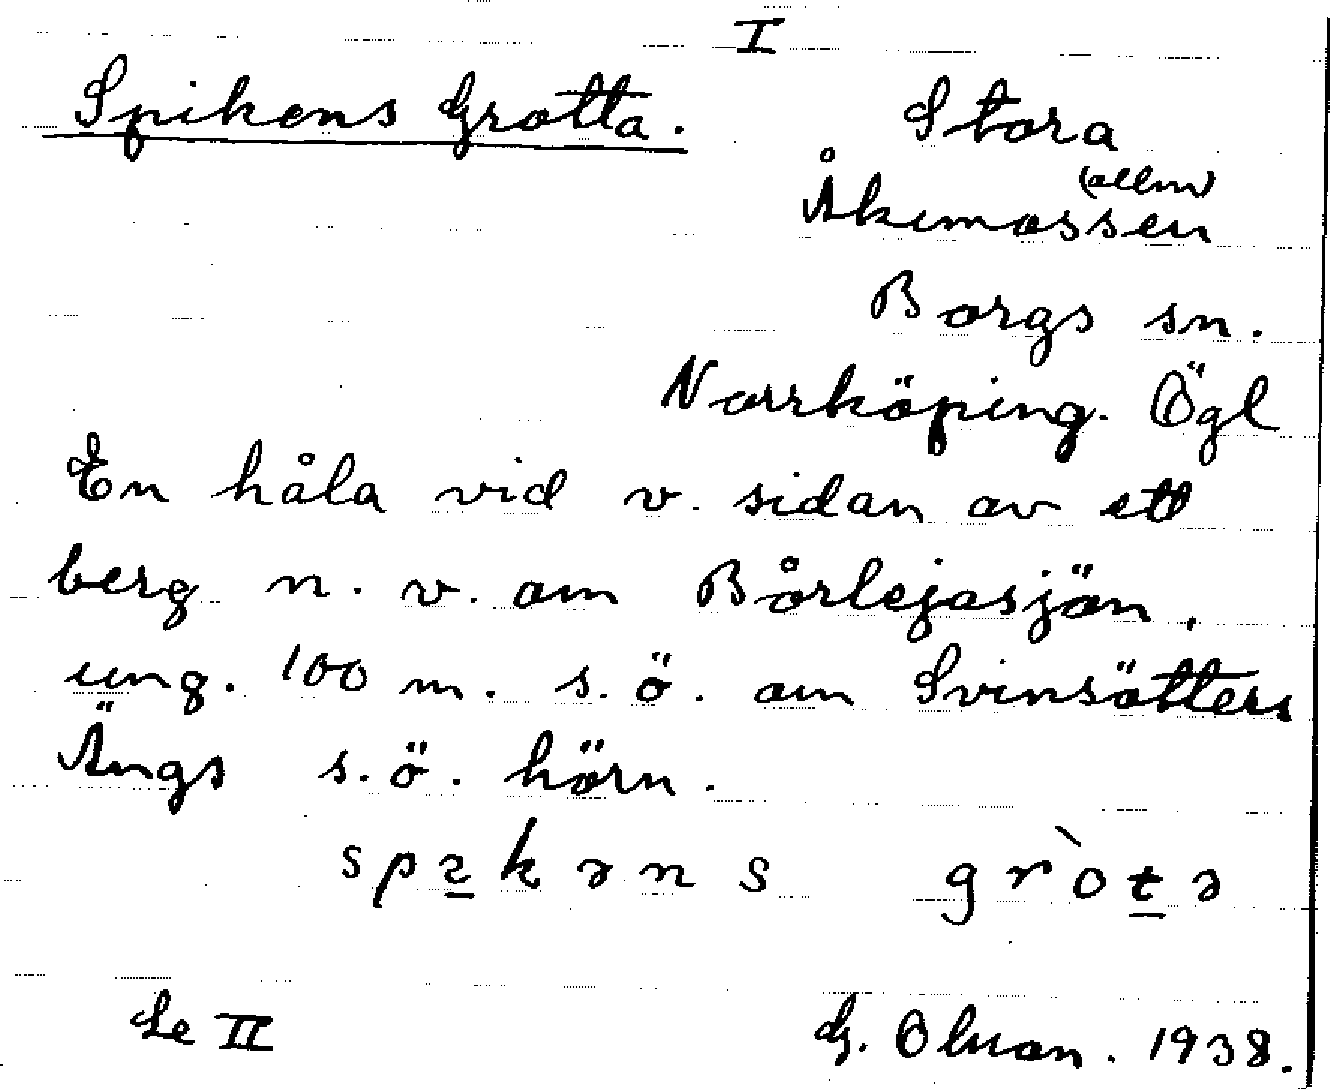 I
Spikens Grotta.
Stora
(allm)
Åkemossen
Borgs sn.
Norrköping. Ögl
En håla vid v. sidan av ett
berg n. v. om Börlejasjön,
ung. 100 m. s. ö. om Svinsätters
Ängs s. ö. hörn.
Se II
G. 1938.